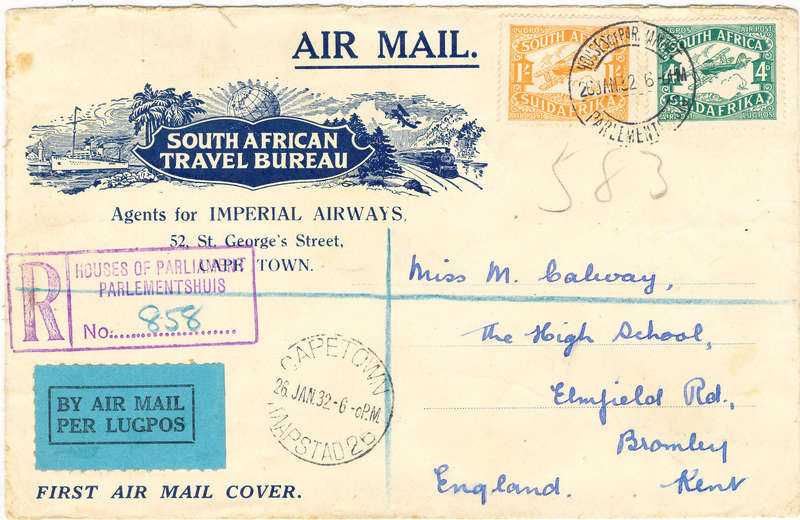 AIR MAIL.
SOUTH AFRICAN
TRAVEL BUREAU
Agents for IMPERIAL AIRWAYS,
52, St. George's Street,
CAPE TOWN.
LUGPOS AIR POST
SOUTH AFRICA
1/- 1/-
SUIDAFRIKA
SOUTH AFRICA
4D 4D
SUIDAFRIKA
AIR POST LUGPOS
HOUSES OF PARLIAMENT
26 JAN. 32 6
PARLEMENTSHUIS
583
R
HOUSES OF PARLIAMENT
PARLEMENTSHUIS
No. 858
CAPETOWN
26. JAN. 32-6-0P.M.
KAAPSTAD 25
BY AIR MAIL
PER LUGPOS
FIRST AIR MAIL COVER.
Miss M. Calway,
The High School,
Elmfield Rd.,
Bromley
England. Kent